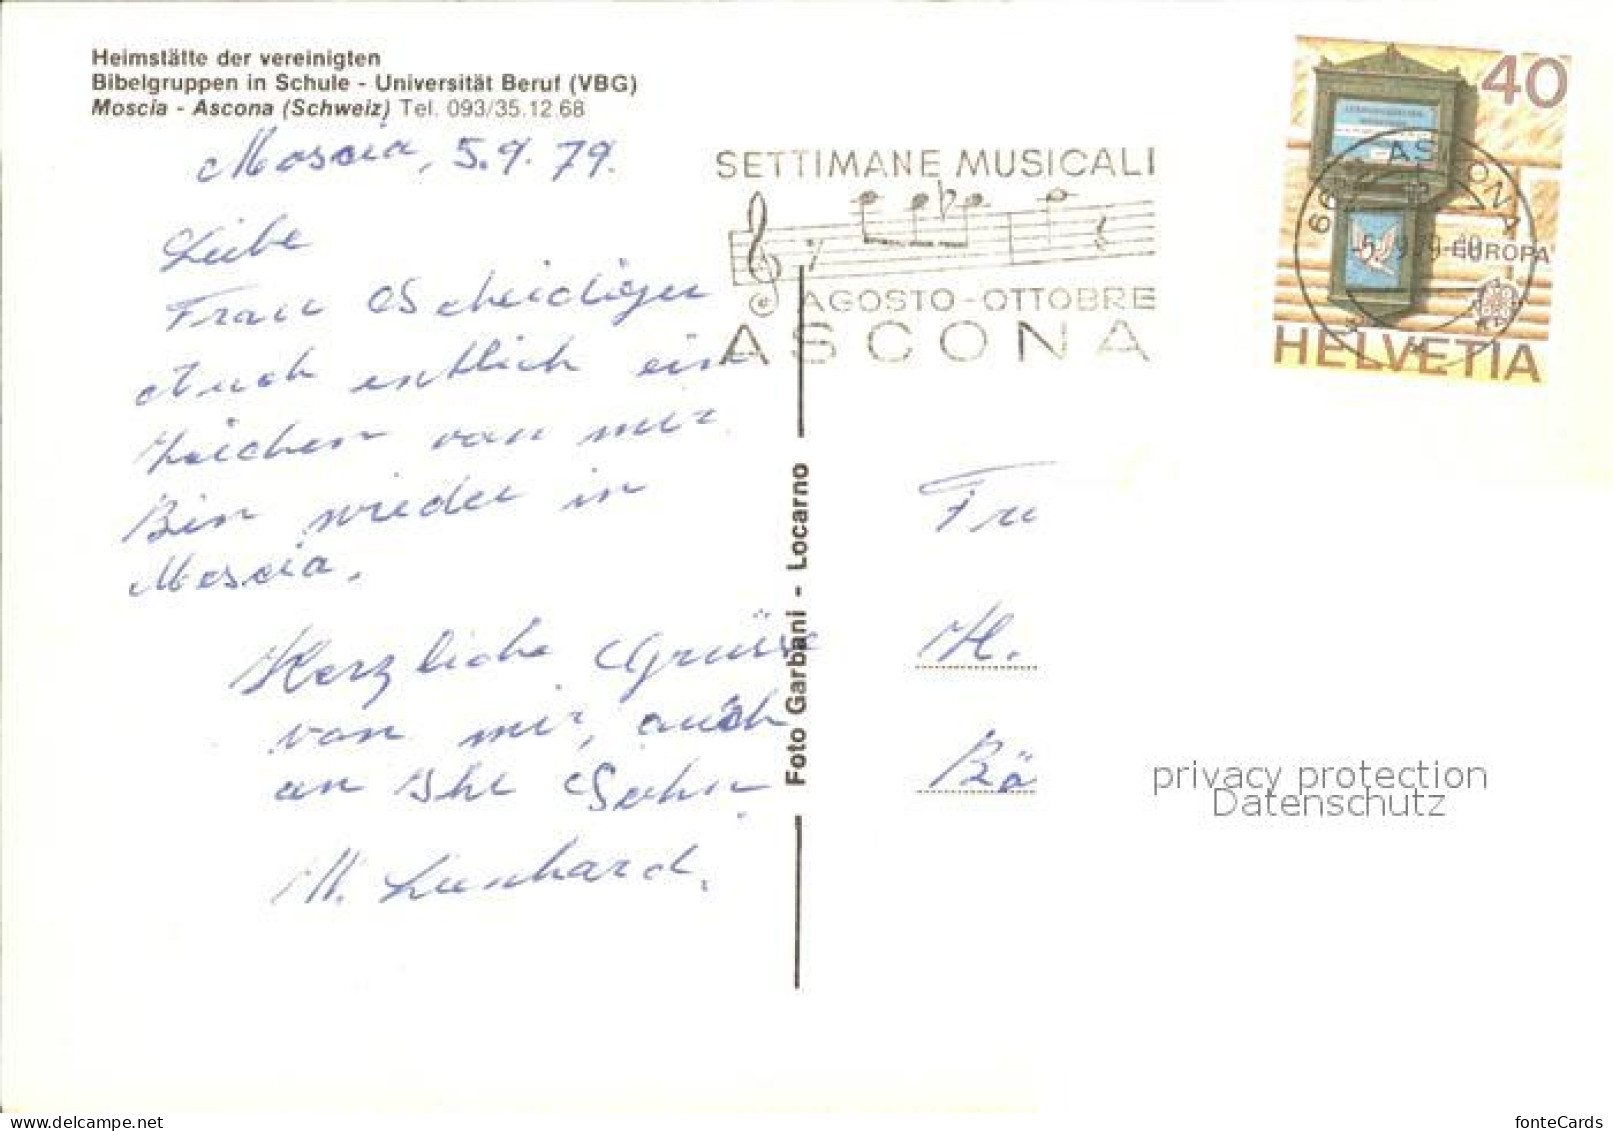 Heimstätte der vereinigten
Bibelgruppen in Schule - Universität Beruf (VBG)
Moscia - Ascona (Schweiz) Tel. 093/35.12.68
Moscia, 5.9.79.
Liebe
Frau Scheidiger
Auch entlich ein
Zeichen von mir
Bin wieder in
Moscia.
Herzliche Grüsse
von mir, auch
an Ihr Sohn
M. Lienhard.
Foto Garbani - Locarno
SETTIMANE MUSICALI
AGOSTO - OTTOBRE
ASCONA
40
ASCONA
EUROPA
HELVETIA
Fr
H.
Bö
privacy protection
Datenschutz
https://www.delcampe.net
fonteCards